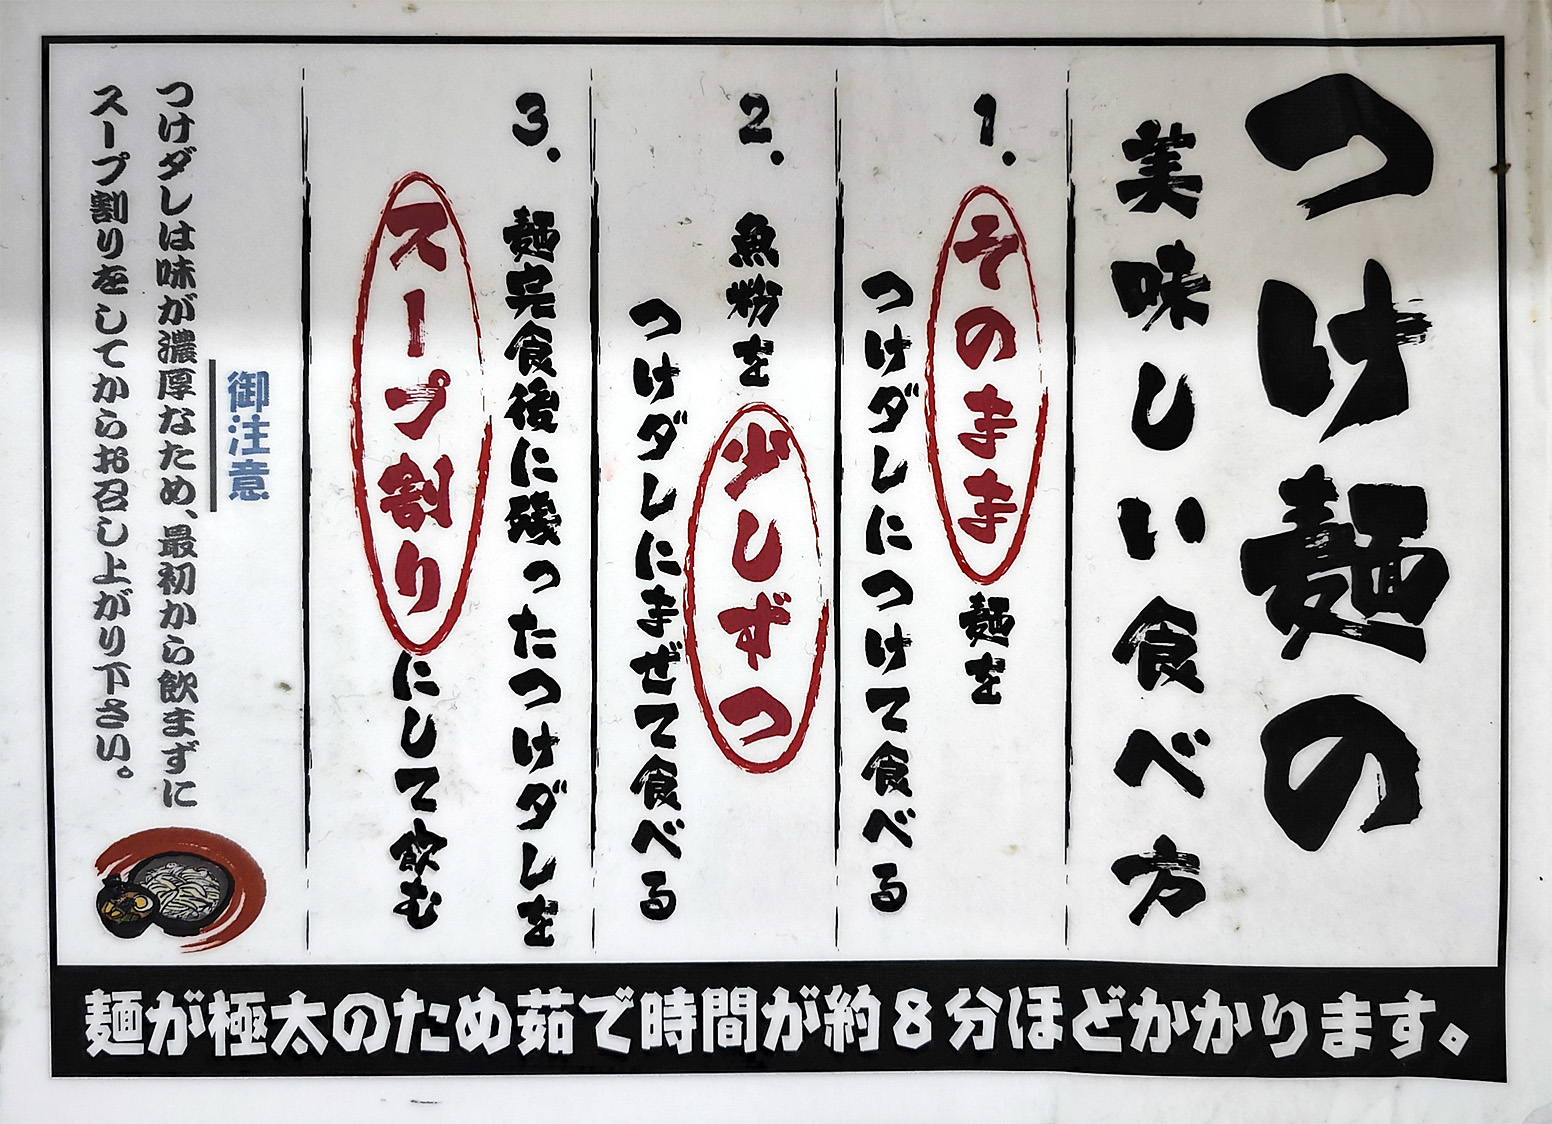 つけ麺の
美味しい食べ方
1. そのまま麺を
つけダしにつけて食べる
2. 魚粉を少しずつ
つけダしにまぜて食べる
3. 麺完食後に残ったつけダしを
スープ割りにして飲む
御注意
つけダしは味が濃厚なため、最初から飲まずに
スープ割りをしてからお召し上がり下さい。
麺が極太のため茹で時間が約8分ほどかかります。